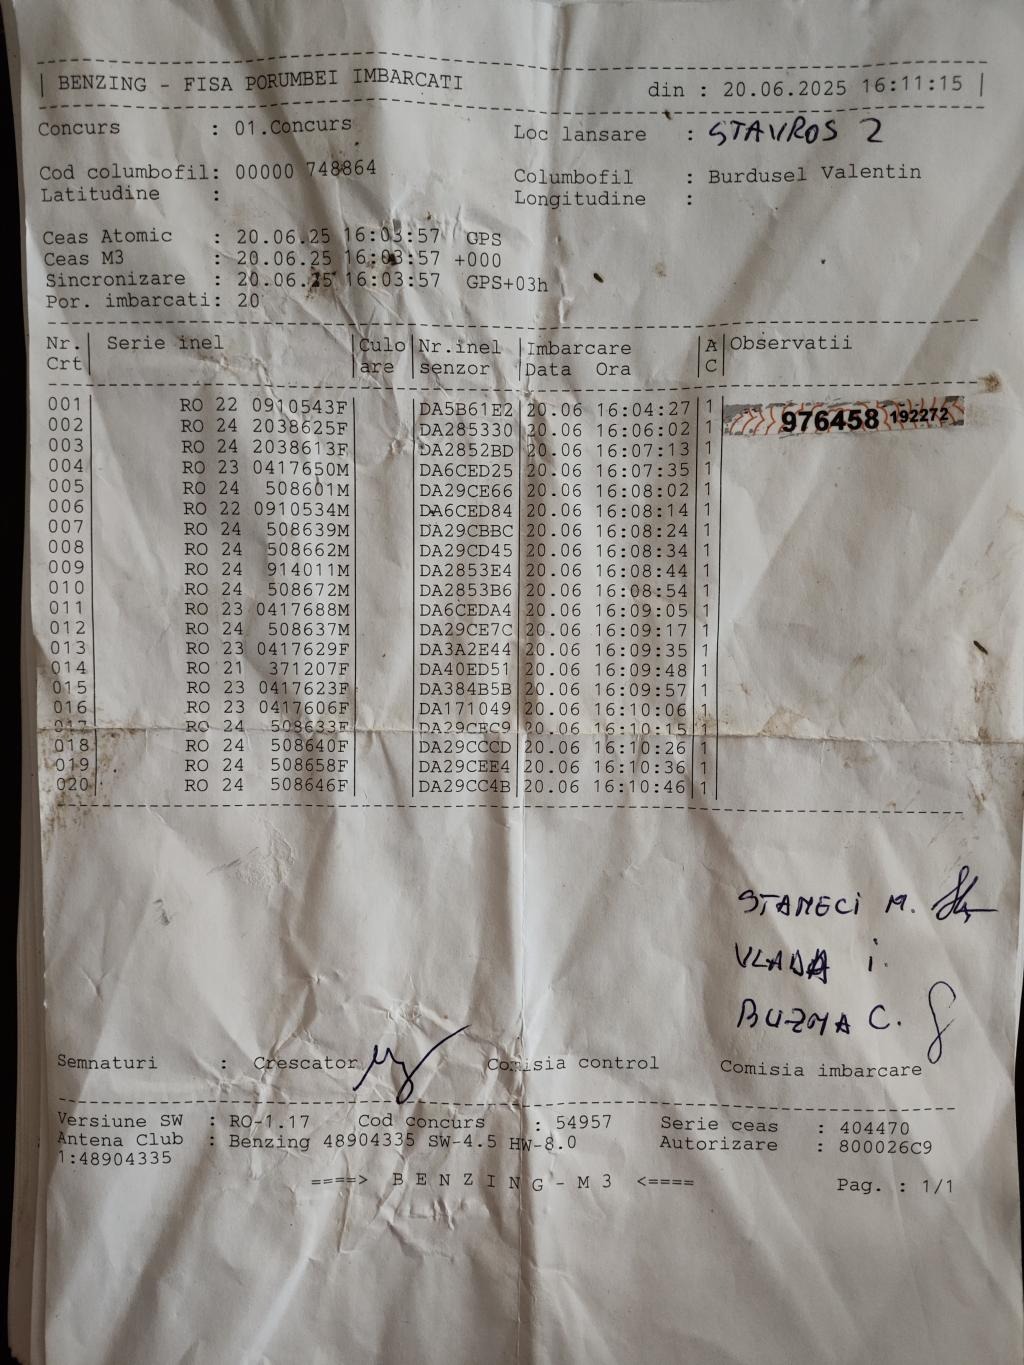 BENZING - FISA PORUMBEI IMBARCATI din : 20.06.2025 16:11:15
Concurs : 01.Concurs Loc lansare : STAVROS 2
Cod columbofil: 00000 748864 Columbofil : Burdusel Valentin
Latitudine : Longitudine :
Ceas Atomic : 20.06.25 16:03:57 GPS
Ceas M3 : 20.06.25 16:03:57 +000
Sincronizare : 20.06.25 16:03:57 GPS+03h
Por. imbarcati: 20
Nr. | Serie inel |Culo|Nr.inel |Imbarcare |A|Observatii
Crt| |are |senzor |Data Ora |C|
001 RO 22 0910543F DA5B61E2 20.06 16:04:27 1 976458 192272
002 RO 24 2038625F DA285330 20.06 16:06:02 1
003 RO 24 2038613F DA2852BD 20.06 16:07:13 1
004 RO 23 0417650M DA6CED25 20.06 16:07:35 1
005 RO 24 508601M DA29CE66 20.06 16:08:02 1
006 RO 22 0910534M DA6CED84 20.06 16:08:14 1
007 RO 24 508639M DA29CBBC 20.06 16:08:24 1
008 RO 24 508662M DA29CD45 20.06 16:08:34 1
009 RO 24 914011M DA2853E4 20.06 16:08:44 1
010 RO 24 508672M DA2853B6 20.06 16:08:54 1
011 RO 23 0417688M DA6CEDA4 20.06 16:09:05 1
012 RO 24 508637M DA29CE7C 20.06 16:09:17 1
013 RO 23 0417629F DA3A2E44 20.06 16:09:35 1
014 RO 21 371207F DA40ED51 20.06 16:09:48 1
015 RO 23 0417623F DA384B5B 20.06 16:09:57 1
016 RO 23 0417606F DA171049 20.06 16:10:06 1
017 RO 24 508633F DA29CEC9 20.06 16:10:15 1
018 RO 24 508640F DA29CCCD 20.06 16:10:26 1
019 RO 24 508658F DA29CEE4 20.06 16:10:36 1
020 RO 24 508646F DA29CC4B 20.06 16:10:46 1
STANECI M.
VLADA i.
BUZMA C.
Semnaturi : Crescator Comisia control Comisia imbarcare
Versiune SW : RO-1.17 Cod concurs : 54957 Serie ceas : 404470
Antena Club : Benzing 48904335 SW-4.5 HW-8.0 Autorizare : 800026C9
1:48904335
====> B E N Z I N G - M 3 <==== Pag. : 1/1